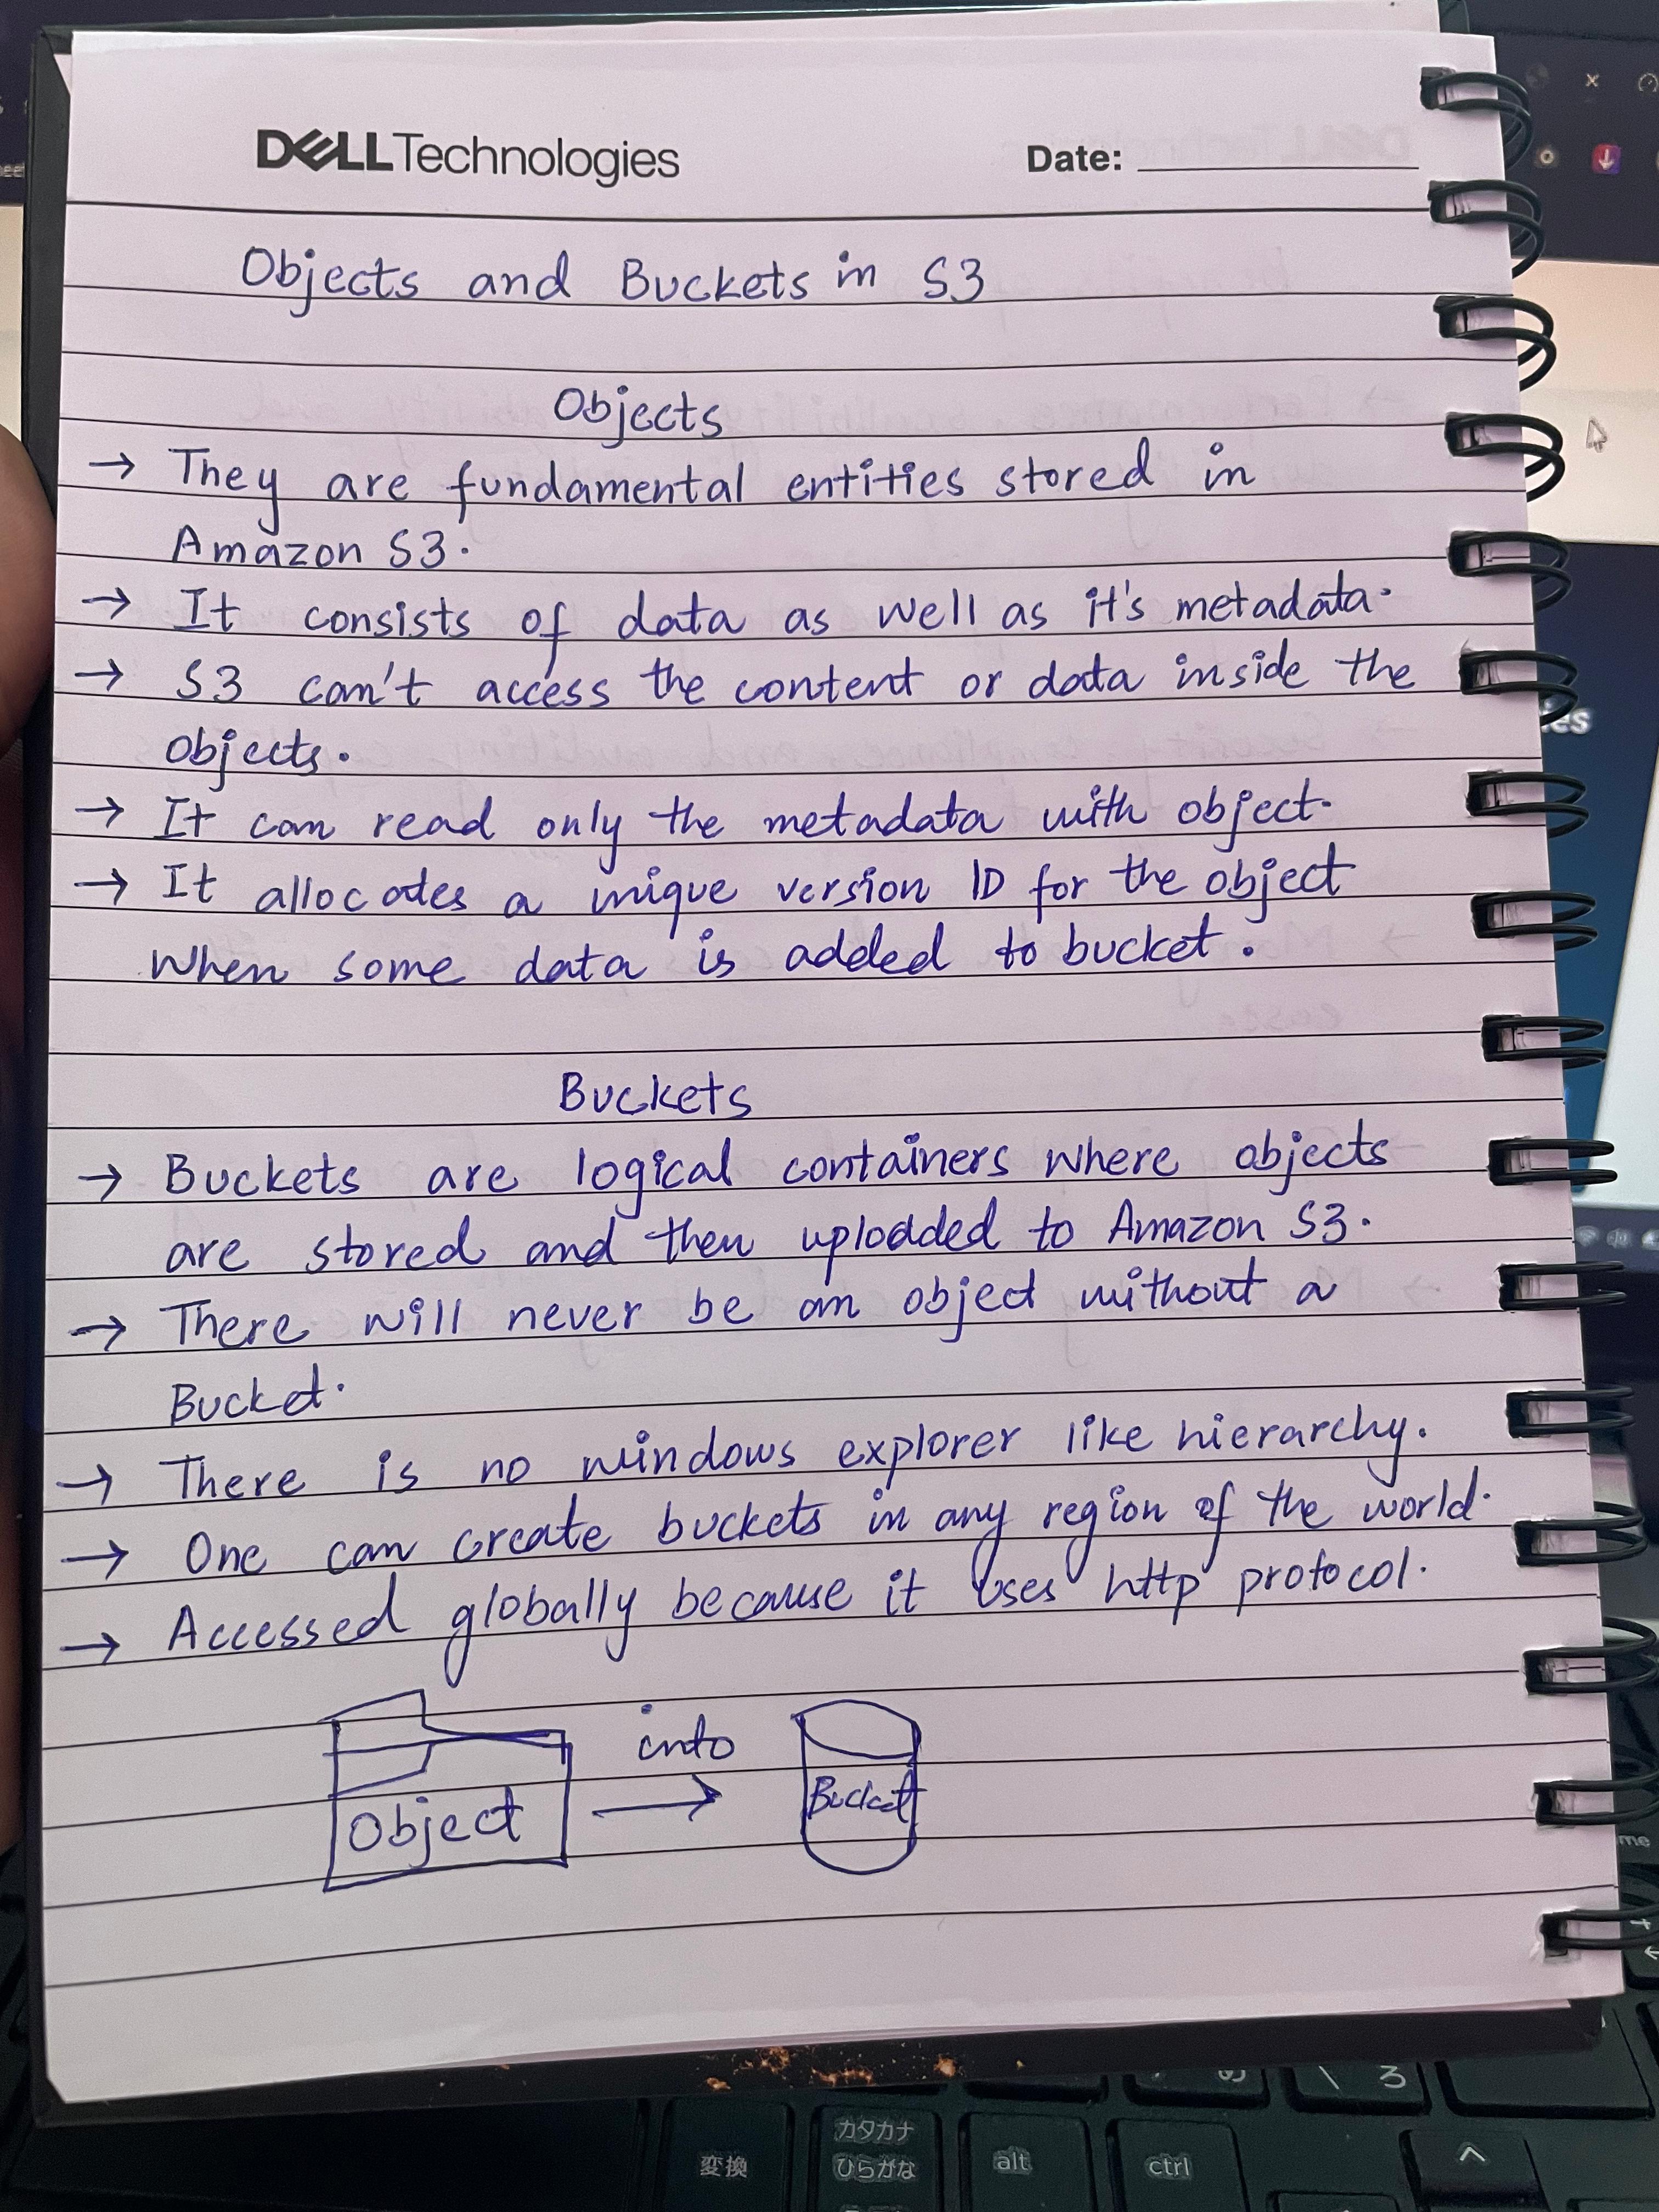 DELLTechnologies
Date:
Objects and Buckets in S3
Objects
→ They are fundamental entities stored in
Amazon S3.
→ It consists of data as well as it's metadata.
→ S3 can't access the content or data inside the
objects.
→ It can read only the metadata with object.
→ It allocates a unique version ID for the object
when some data is added to bucket.
Buckets
→ Buckets are logical containers where objects
are stored and then uploaded to Amazon S3.
→ There will never be an object without a
Bucket.
→ There is no windows explorer like hierarchy.
→ One can create buckets in any region of the world.
→ Accessed globally because it uses http protocol.
into
Object → Bucket
変換
カタカナ
ひらがな
alt
ctrl